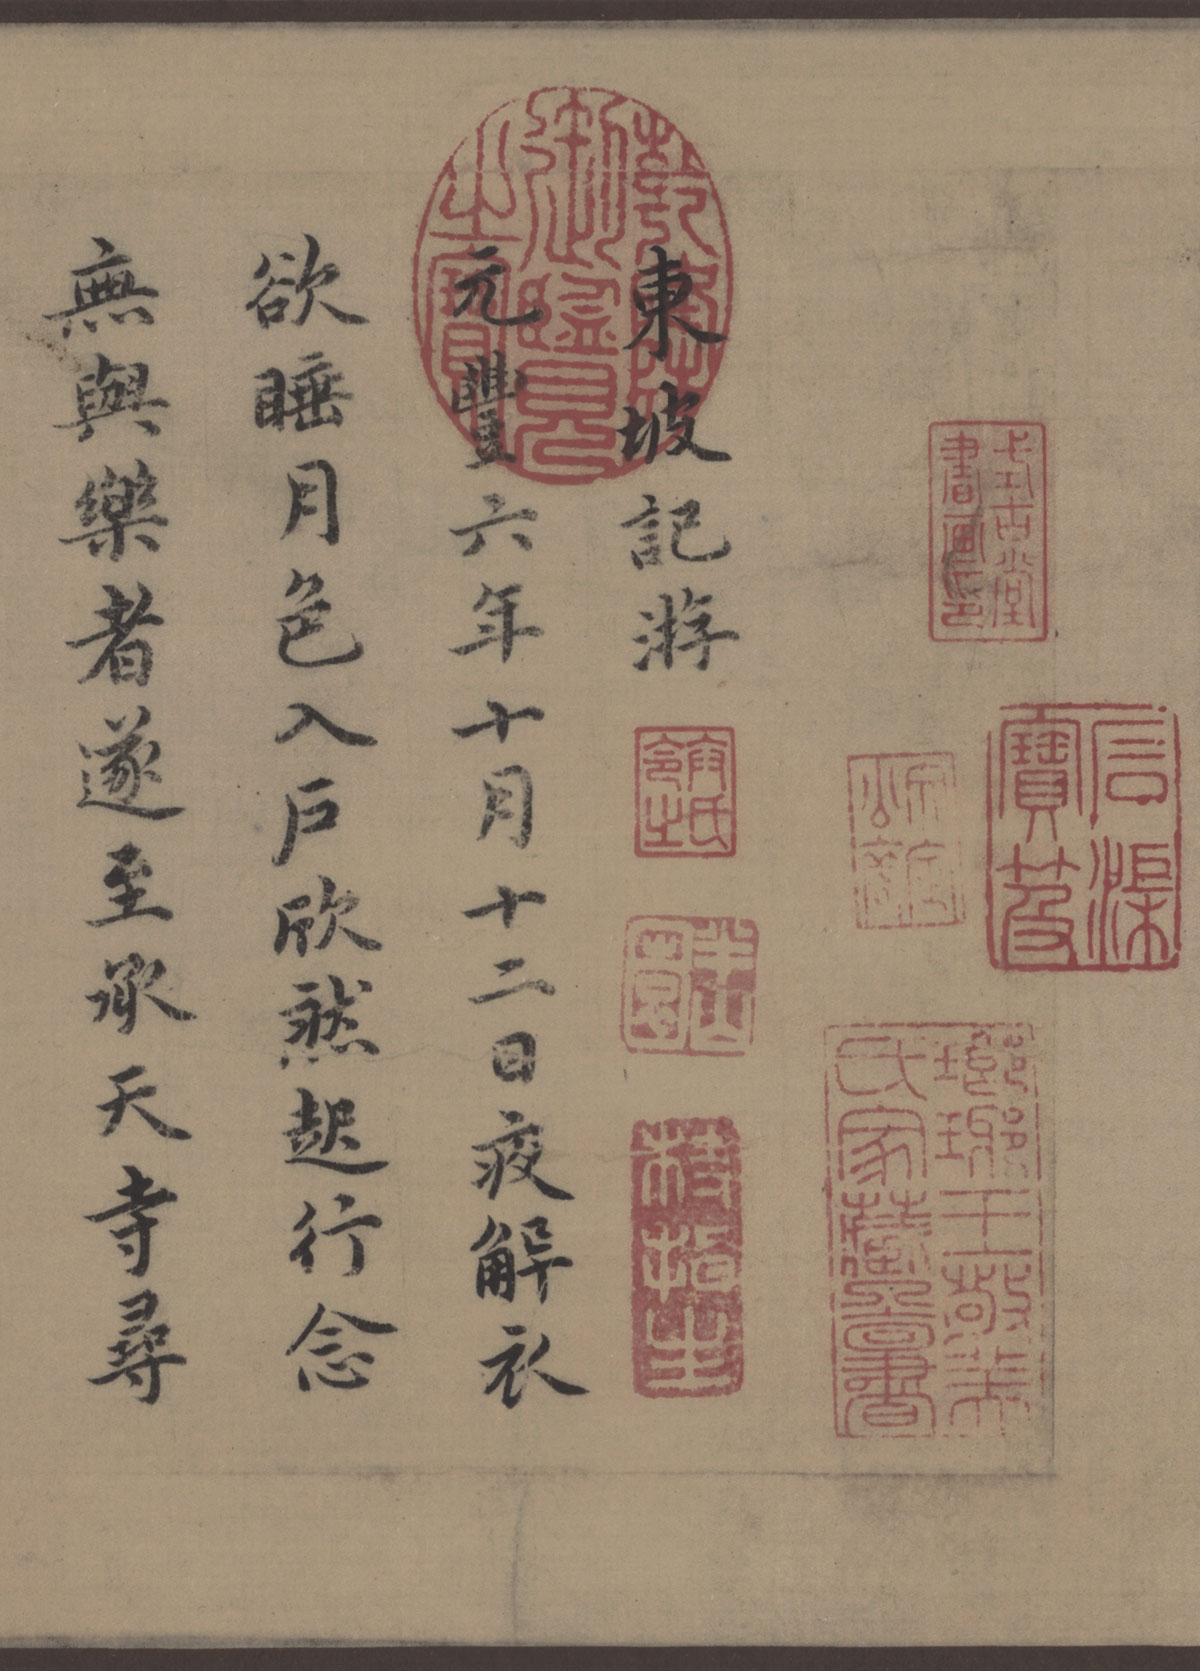 石渠
寶笈
式古堂
書畫印
琅琊王敬美
氏家藏圖書
乾隆
御覽
之寶
東坡記游
元豐六年十月十二日夜解衣
欲睡月色入戶欣然起行念
無與樂者遂至承天寺尋